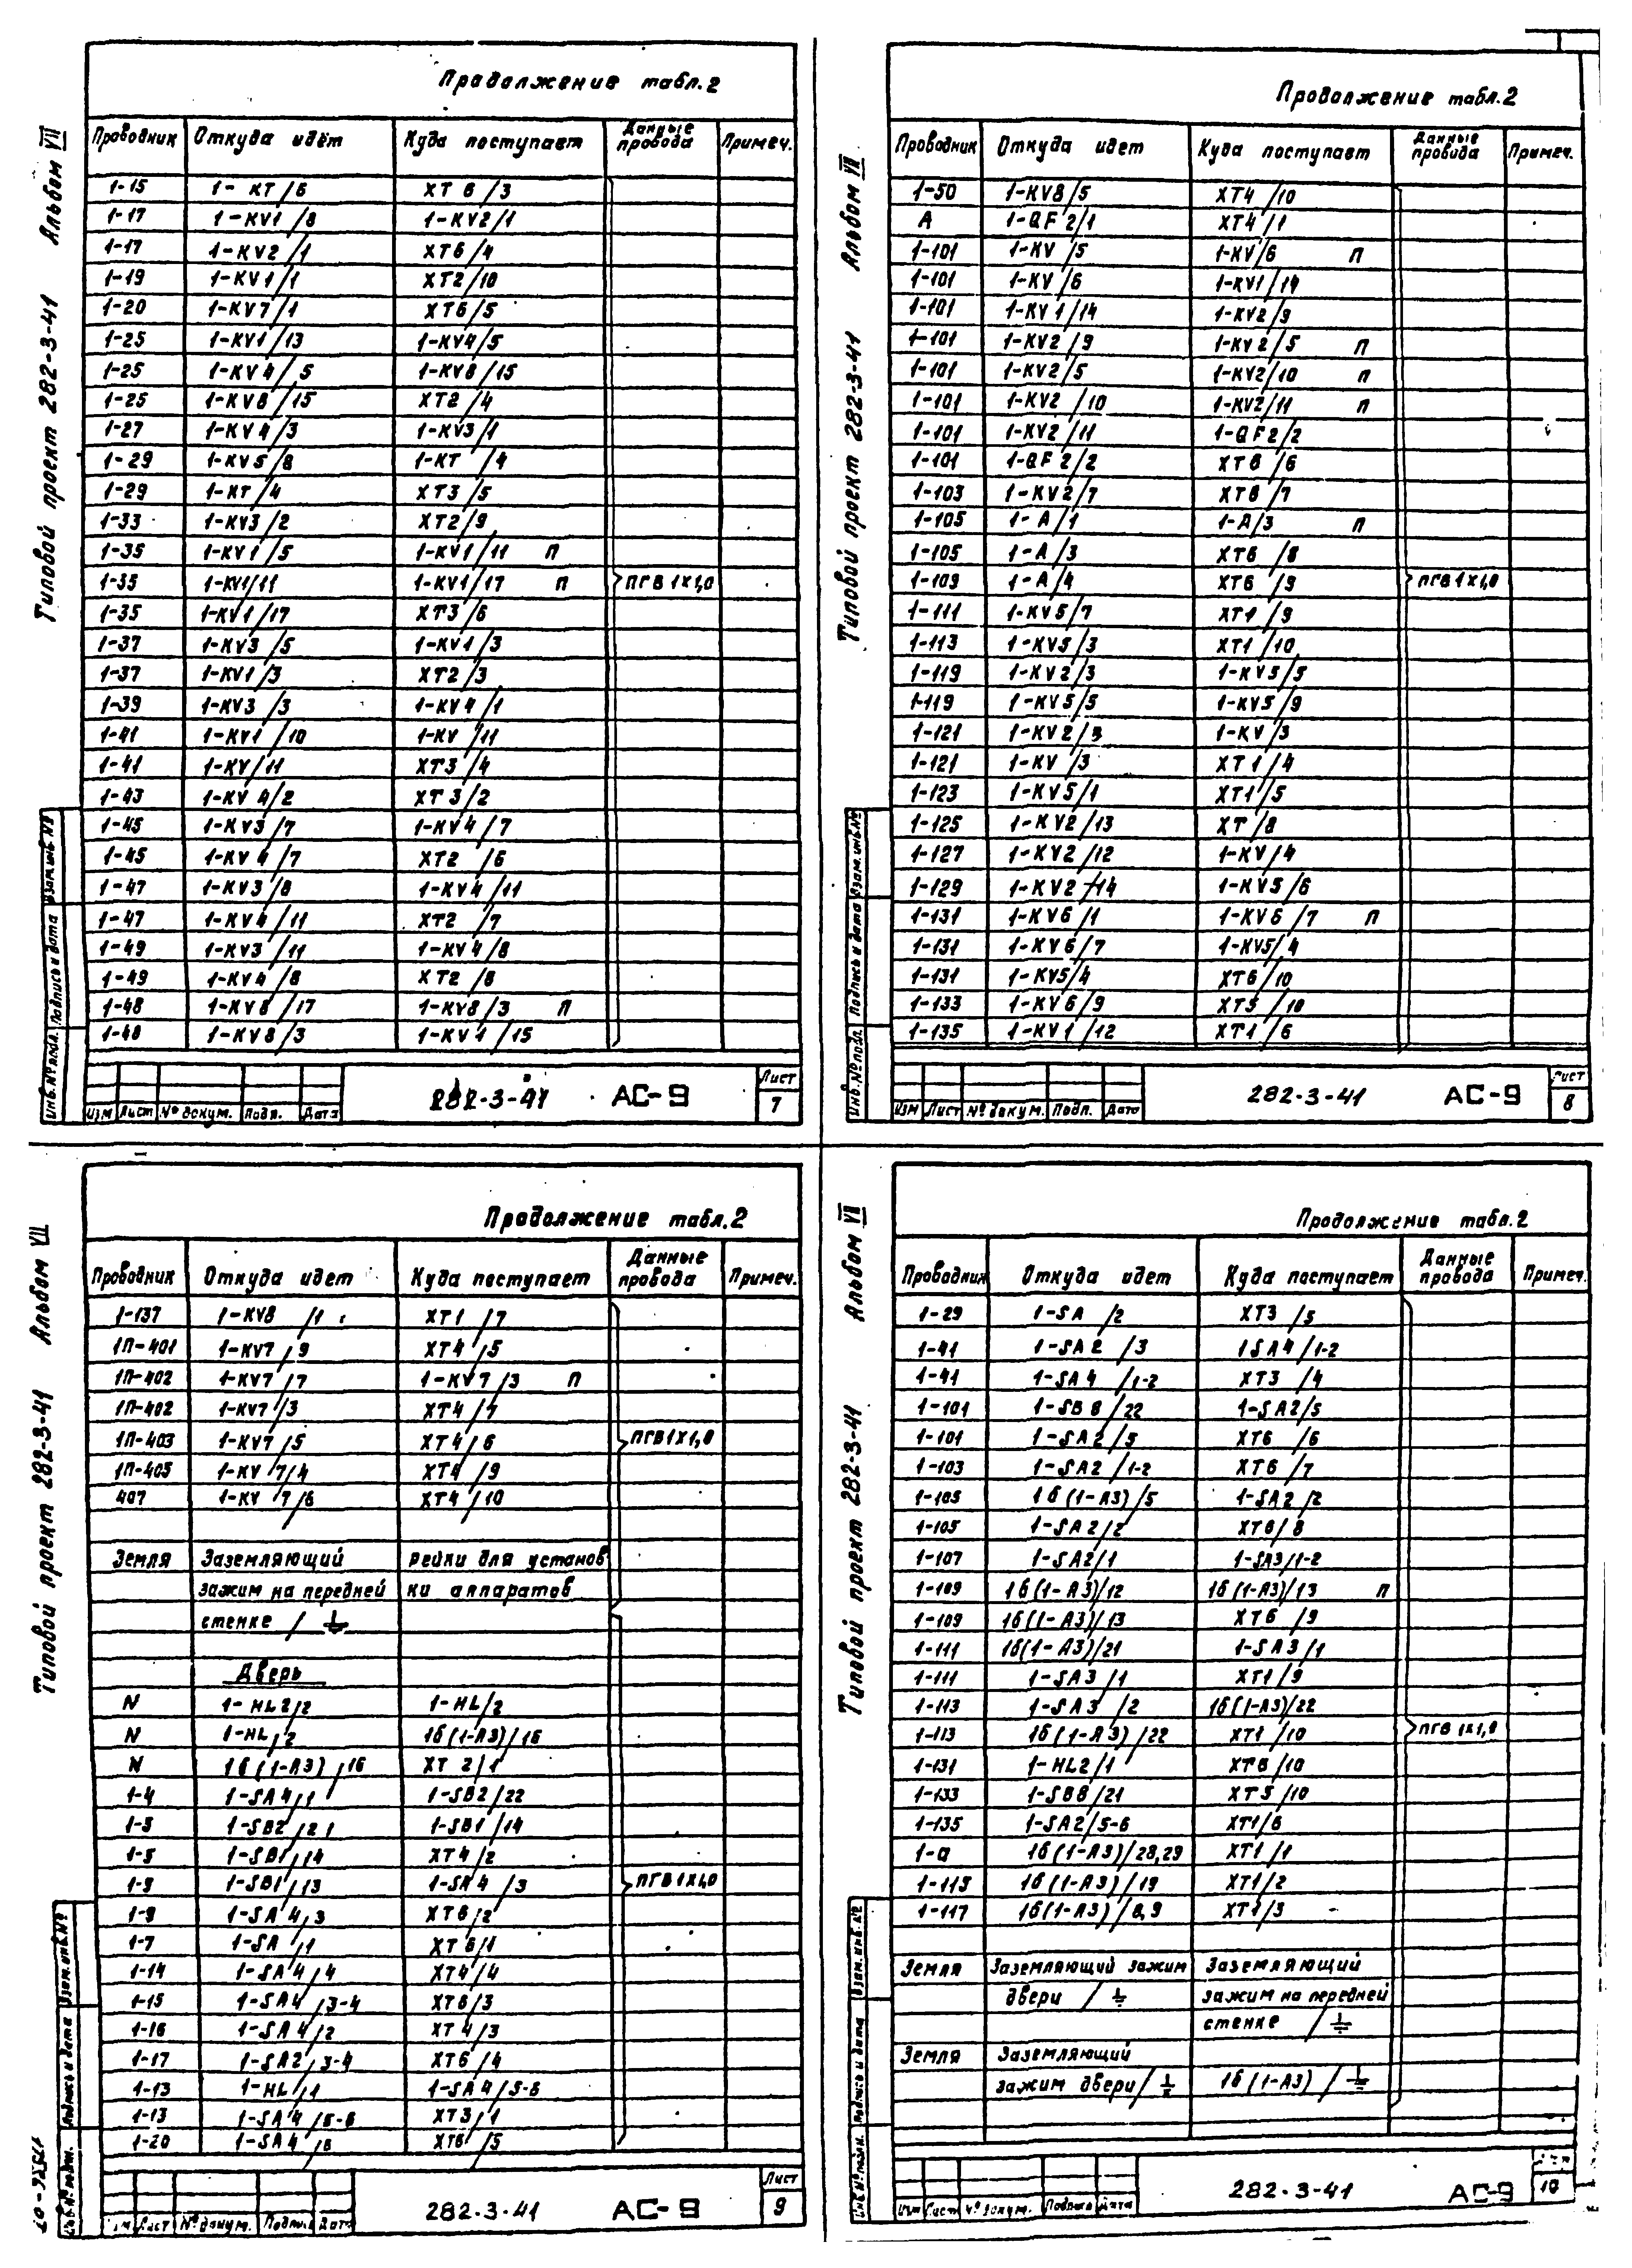 Альбом VII
Типовой проект 282-3-41
Продолжение табл.2
Проводник Откуда идёт Куда поступает Данные провода Примеч.
1-15 1-КТ/6 ХТ6/3
1-17 1-KV1/8 1-KV2/1
1-17 1-KV2/1 ХТ6/4
1-19 1-KV1/1 ХТ2/10
1-20 1-KV7/1 ХТ6/5
1-25 1-KV1/13 1-KV4/5
1-25 1-KV4/5 1-KV8/15
1-25 1-KV8/15 ХТ2/4
1-27 1-KV4/3 1-KV3/1
1-29 1-KV5/8 1-КТ/4
1-29 1-КТ/4 ХТ3/5
1-33 1-KV3/2 ХТ2/9
1-35 1-KV1/5 1-KV1/11 П
1-35 1-KV1/11 1-KV1/17 П ПГВ 1х1,0
1-35 1-KV1/17 ХТ3/6
1-37 1-KV3/5 1-KV1/3
1-37 1-KV1/3 ХТ2/3
1-39 1-KV3/3 1-KV4/1
1-41 1-KV1/10 1-KV/11
1-41 1-KV/11 ХТ3/4
1-43 1-KV4/2 ХТ3/2
1-45 1-KV3/7 1-KV4/7
1-45 1-KV4/7 ХТ2/6
1-47 1-KV3/8 1-KV4/11
1-47 1-KV4/11 ХТ2/7
1-49 1-KV3/11 1-KV4/8
1-49 1-KV4/8 ХТ2/8
1-48 1-KV8/17 1-KV8/3 П
1-48 1-KV8/3 1-KV1/15
Инв.№ подл. Подпись и дата Взам.инв.№
Изм Лист № докум. Подп. Дата
282-3-41 АС-9
Лист
7
Альбом VII
Типовой проект 282-3-41
Продолжение табл.2
Проводник Откуда идет Куда поступает Данные провода Примеч.
1-50 1-KV8/5 ХТ4/10
А 1-QF2/1 ХТ4/1
1-101 1-KV/5 1-KV/6 П
1-101 1-KV/6 1-KV1/14
1-101 1-KV1/14 1-KV2/9
1-101 1-KV2/9 1-KV2/5 П
1-101 1-KV2/5 1-KV2/10 П
1-101 1-KV2/10 1-KV2/11 П
1-101 1-KV2/11 1-QF2/2
1-101 1-QF2/2 ХТ6/6
1-103 1-KV2/7 ХТ6/7
1-105 1-А/1 1-А/3 П
1-105 1-А/3 ХТ6/8
1-109 1-А/4 ХТ6/9 ПГВ 1х1,0
1-111 1-KV5/7 ХТ1/9
1-113 1-KV5/3 ХТ1/10
1-119 1-KV2/3 1-KV5/5
1-119 1-KV5/5 1-KV5/9
1-121 1-KV2/8 1-KV/3
1-121 1-KV/3 ХТ1/4
1-123 1-KV5/1 ХТ1/5
1-125 1-KV2/13 ХТ/8
1-127 1-KV2/12 1-KV/4
1-129 1-KV2-14 1-KV5/6
1-131 1-KV6/1 1-KV6/7 П
1-131 1-KV6/7 1-KV5/4
1-131 1-KV5/4 ХТ6/10
1-133 1-KV6/9 ХТ5/10
1-135 1-KV1/12 ХТ1/6
Инв.№ подл. Подпись и дата Взам.инв.№
Изм Лист № докум. Подп. Дата
282-3-41 АС-9
Лист
8
Альбом VII
Типовой проект 282-3-41
Продолжение табл.2
Проводник Откуда идет Куда поступает Данные провода Примеч.
1-137 1-KV8/1 ХТ1/7
1П-401 1-KV7/9 ХТ4/5
1П-402 1-KV7/7 1-KV7/3 П
1П-402 1-KV7/3 ХТ4/7
1П-403 1-KV7/5 ХТ4/6 ПГВ1х1,0
1П-405 1-KV7/4 ХТ4/9
407 1-KV7/6 ХТ4/10
Земля Заземляющий рейки для установ
зажим на передней ки аппаратов
стенке /
Дверь
N 1-HL2/2 1-HL/2
N 1-HL/2 1б(1-А3)/16
N 1б(1-А3)/16 ХТ2/1
1-4 1-SA4/1 1-SB2/22
1-3 1-SB2/21 1-SB1/14
1-5 1-SB1/14 ХТ4/2
1-9 1-SB1/13 1-SA4/3 ПГВ1х1,0
1-9 1-SA4/3 ХТ6/2
1-7 1-SA/1 ХТ6/1
1-14 1-SA4/4 ХТ4/4
1-15 1-SA4/3-4 ХТ6/3
1-16 1-SA4/2 ХТ4/3
1-17 1-SA2/3-4 ХТ6/4
1-13 1-HL/1 1-SA4/5-6
1-13 1-SA4/5-6 ХТ3/1
1-20 1-SA4/6 ХТ6/5
Подпись и дата Взам.инв.№
Лист № докум. Подпись Дата
282-3-41 АС-9
Лист
9
Альбом VII
Типовой проект 282-3-41
Продолжение табл.2
Проводник Откуда идет Куда поступает Данные провода Примеч.
1-29 1-SA/2 ХТ3/5
1-41 1-SA2/3 1SA4/1-2
1-41 1-SA4/1-2 ХТ3/4
1-101 1-SB8/22 1-SA2/5
1-101 1-SA2/5 ХТ6/6
1-103 1-SA2/1-2 ХТ6/7
1-105 1б(1-А3)/5 1-SA2/2
1-105 1-SA2/2 ХТ6/8
1-107 1-SA2/1 1-SA3/1-2
1-109 1б(1-А3)/12 1б(1-А3)/13 П
1-109 1б(1-А3)/13 ХТ6/9
1-111 1б(1-А3)/21 1-SA3/1
1-111 1-SA3/1 ХТ1/9
1-113 1-SA3/2 1б(1-А3)/22
1-113 1б(1-А3)/22 ХТ1/10 ПГВ 1х1,0
1-131 1-HL2/1 ХТ6/10
1-133 1-SB8/21 ХТ5/10
1-135 1-SA2/5-6 ХТ1/6
1-а 1б(1-А3)/28,29 ХТ1/1
1-115 1б(1-А3)/19 ХТ1/2
1-117 1б(1-А3)/8,9 ХТ1/3
Земля Заземляющий зажим Заземляющий
двери / зажим на передней
стенке /
Земля Заземляющий
зажим двери/ 1б(1-А3)/
Подпись и дата Взам.инв.№
Изм Лист № докум. Подпись Дата
282-3-41 АС-9
10